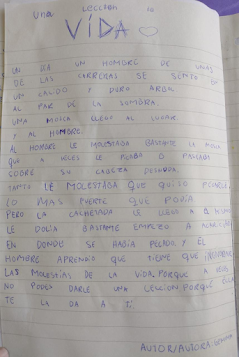 Una LECCION
VÍDA
UN DIA UN HOMBRE DE
DE LAS CARROSAS SE SENTO EN
UN CALIDO Y DURO ARBOL
AL PAR DE LA SOMBRA.
UNA MOSCA LLEGO AL LUGAR
Y AL HOMBRE.
AL HOMBRE LE MOLESTABA BASTANTE LA MOSCA
QUE A VECES LE PICABA O PASEABA
SOBRE SU CABEZA DESNUDA.
TANTO LE MOLESTABA QUE QUISO PEGARLE
LO MAS FUERTE QUE PODIA
PERO LA CACHETADA LE LLEGO A EL
LE DOLIA BASTANTE EMPEZO A
EN DONDE SE HABIA PELADO Y EL
HOMBRE APRENDIO QUE TIENE QUE
LAS MOLESTIAS DE LA VIDA PORQUE A VECES
NO PODES DARLE UNA LECCION PORQUE ELLA
TE LA DA A TI.
AUTOR/AUTORA: